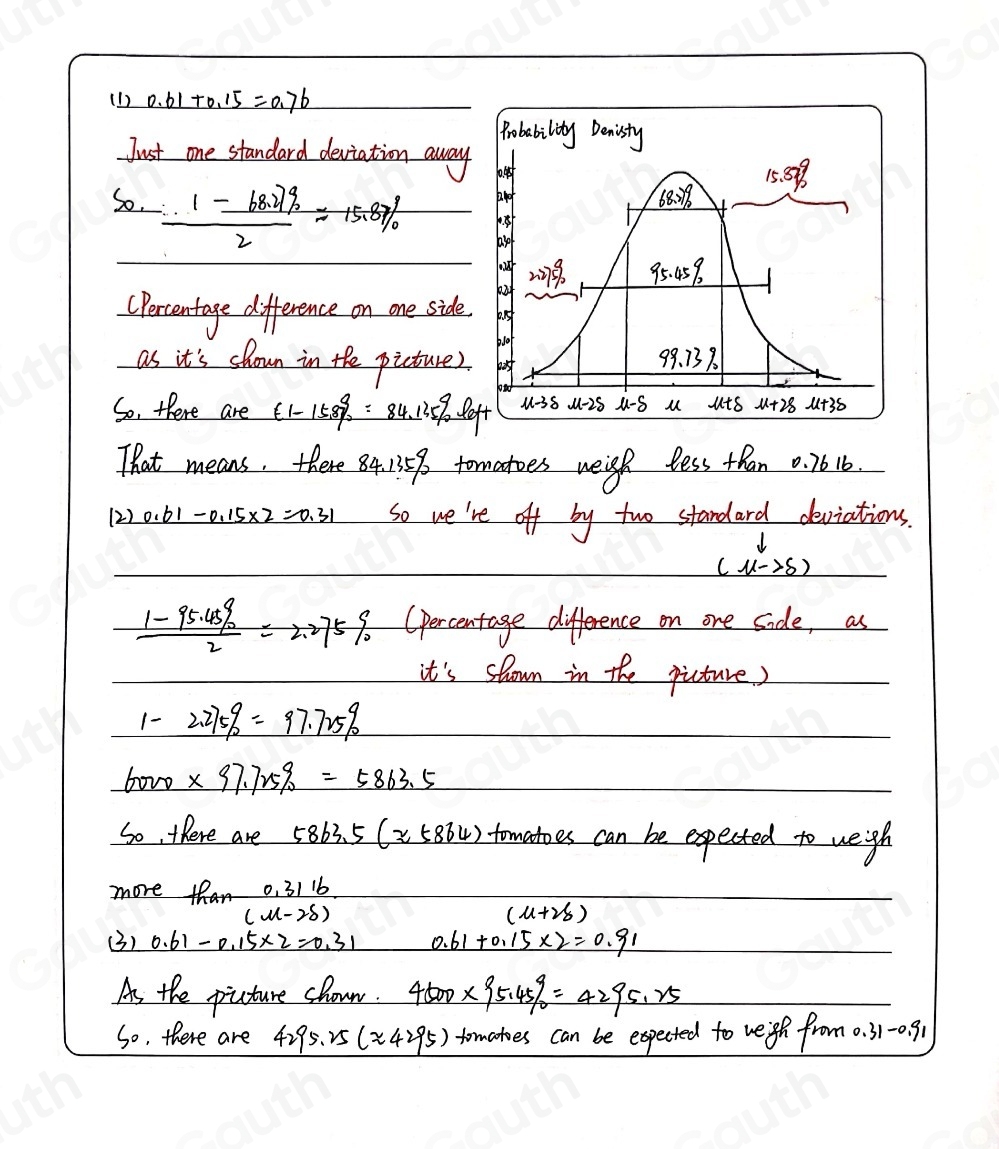 (1) 0.61 + 0.15 = 0.76
Just one standard deviation away
So. 1 - 68.27% / 2 = 15.87%
(Percentage difference on one side.
as it's shown in the picture)
So, there are 1 - 15.87% = 84.135% left
Probability Denisty
0.45
0.40
0.35
0.30
0.25
0.20
0.15
0.10
0.05
0.00
15.87%
68.27%
2.275%
95.45%
99.73%
μ-3δ μ-2δ μ-δ μ μ+δ μ+2δ μ+3δ
That means. there 84.135% tomatoes weigh less than 0.76 lb.
(2) 0.61 - 0.15×2 = 0.31 So we're off by two standard deviations.
↓
(μ-2δ)
1 - 95.45% / 2 = 2.275% (Percentage difference on one side, as
it's shown in the picture.)
1 - 2.275% = 97.725%
6000 × 97.725% = 5863.5
So, there are 5863.5 (≈ 5864) tomatoes can be expected to weigh
more than 0.31 lb.
(μ-2δ) (μ+2δ)
(3) 0.61 - 0.15×2 = 0.31 0.61 + 0.15×2 = 0.91
As the picture shown. 4500 × 95.45% = 4295.25
So. there are 4295.25 (≈ 4295) tomatoes can be expected to weigh from 0.31-0.91
Gauth